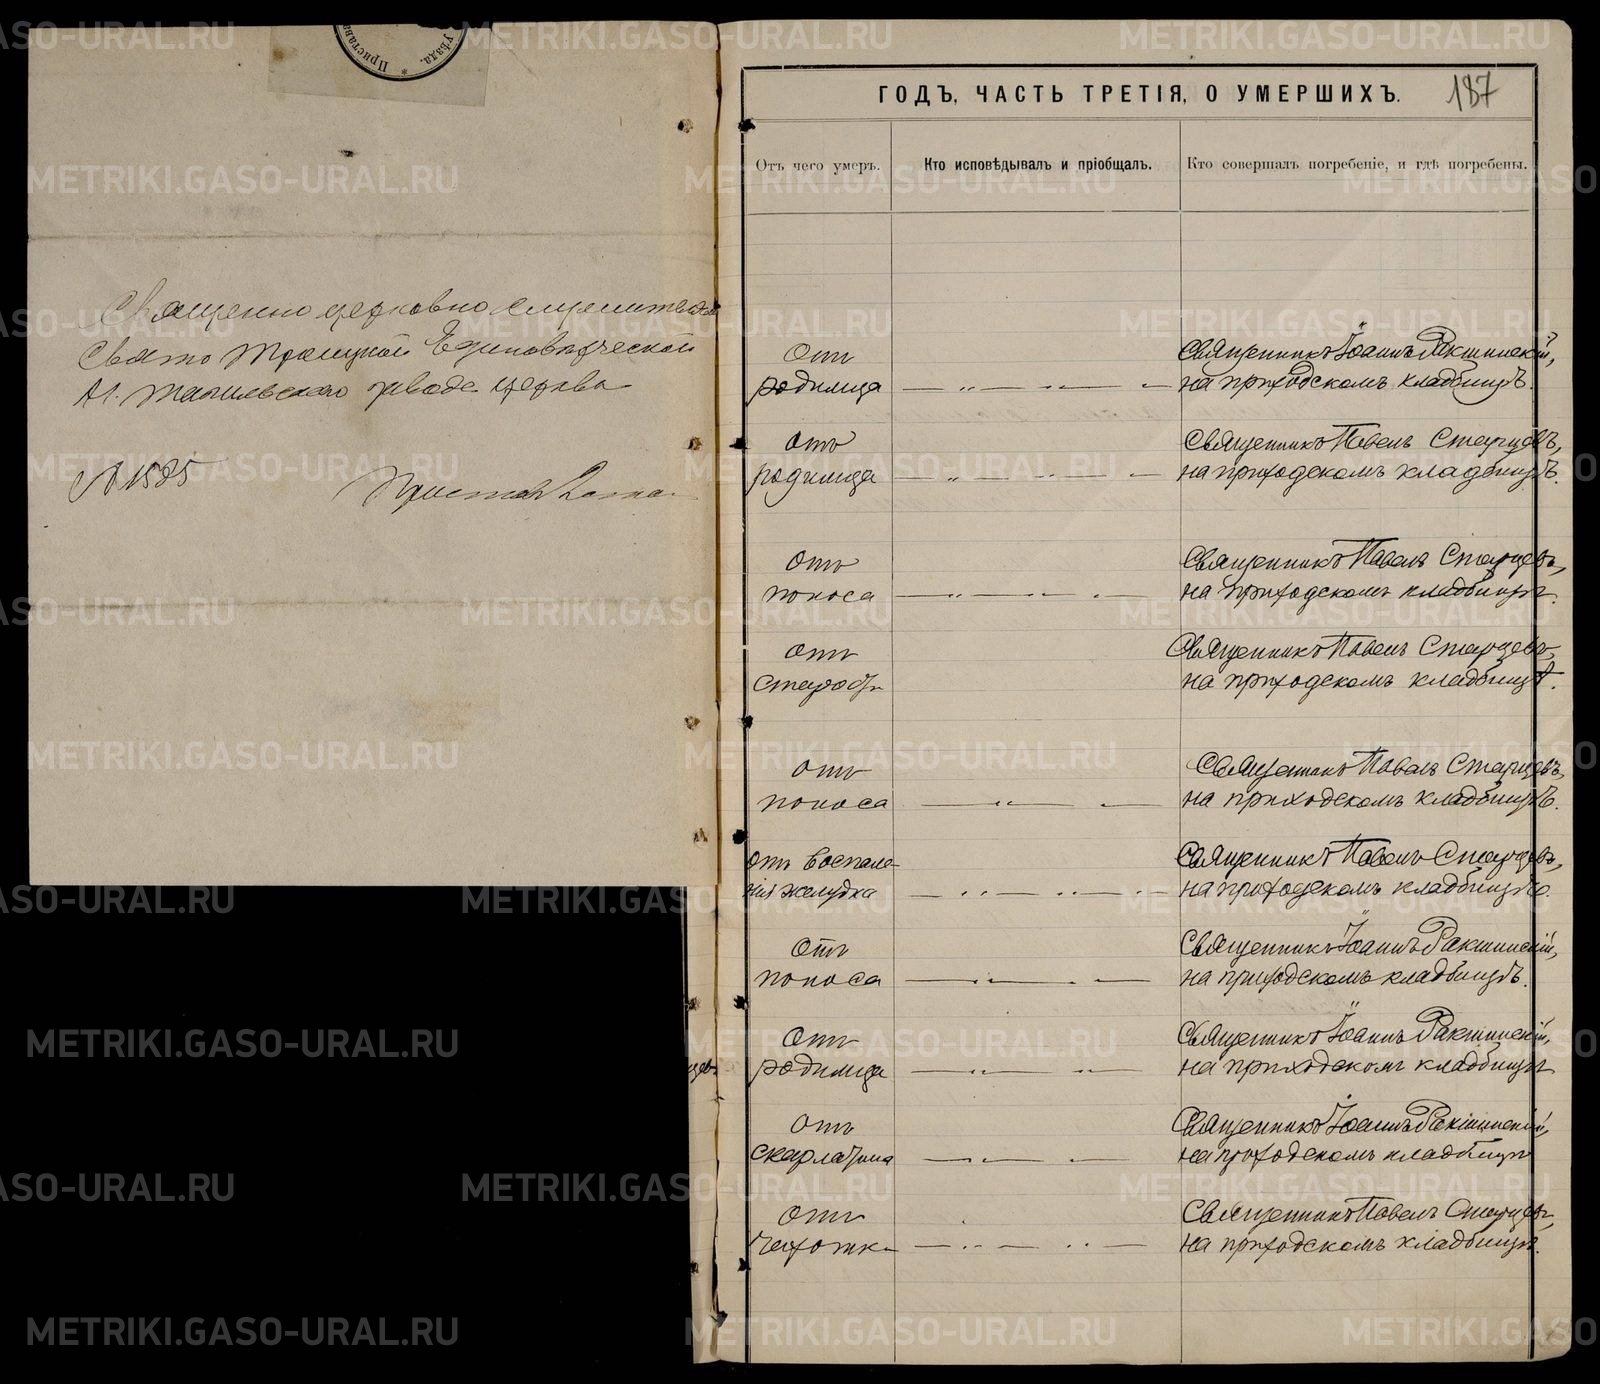 Пристава
уѣзда.
Священно церковно служителямъ
Свято Троицкой Единовѣрческой
Н. Тагильскаго завода церкви
№ 1585
Приставъ
ГОДЪ, ЧАСТЬ ТРЕТІЯ, О УМЕРШИХЪ.
187
Отъ чего умеръ.
Кто исповѣдывалъ и пріобщалъ.
Кто совершалъ погребеніе, и гдѣ погребены.
Отъ
родимца
Священникъ Іоаннъ Ракшинскій,
на приходскомъ кладбищѣ.
Отъ
родимца
Священникъ Павелъ Старцевъ,
на приходскомъ кладбищѣ.
Отъ
поноса
Священникъ Павелъ Старцевъ,
на приходскомъ кладбищѣ.
Отъ
старости
Священникъ Павелъ Старцевъ,
на приходскомъ кладбищѣ.
Отъ
поноса
Священникъ Павелъ Старцевъ,
на приходскомъ кладбищѣ.
Отъ воспале-
нія желудка
Священникъ Павелъ Старцевъ,
на приходскомъ кладбищѣ.
Отъ
поноса
Священникъ Іоаннъ Ракшинскій,
на приходскомъ кладбищѣ.
Отъ
родимца
Священникъ Іоаннъ Ракшинскій,
на приходскомъ кладбищѣ
Отъ
скарлатина
Священникъ Іоаннъ Ракшинскій,
на приходскомъ кладбищѣ
Отъ
чахотки
Священникъ Павелъ Старцевъ,
на приходскомъ кладбищѣ.
METRIKI.GASO-URAL.RU